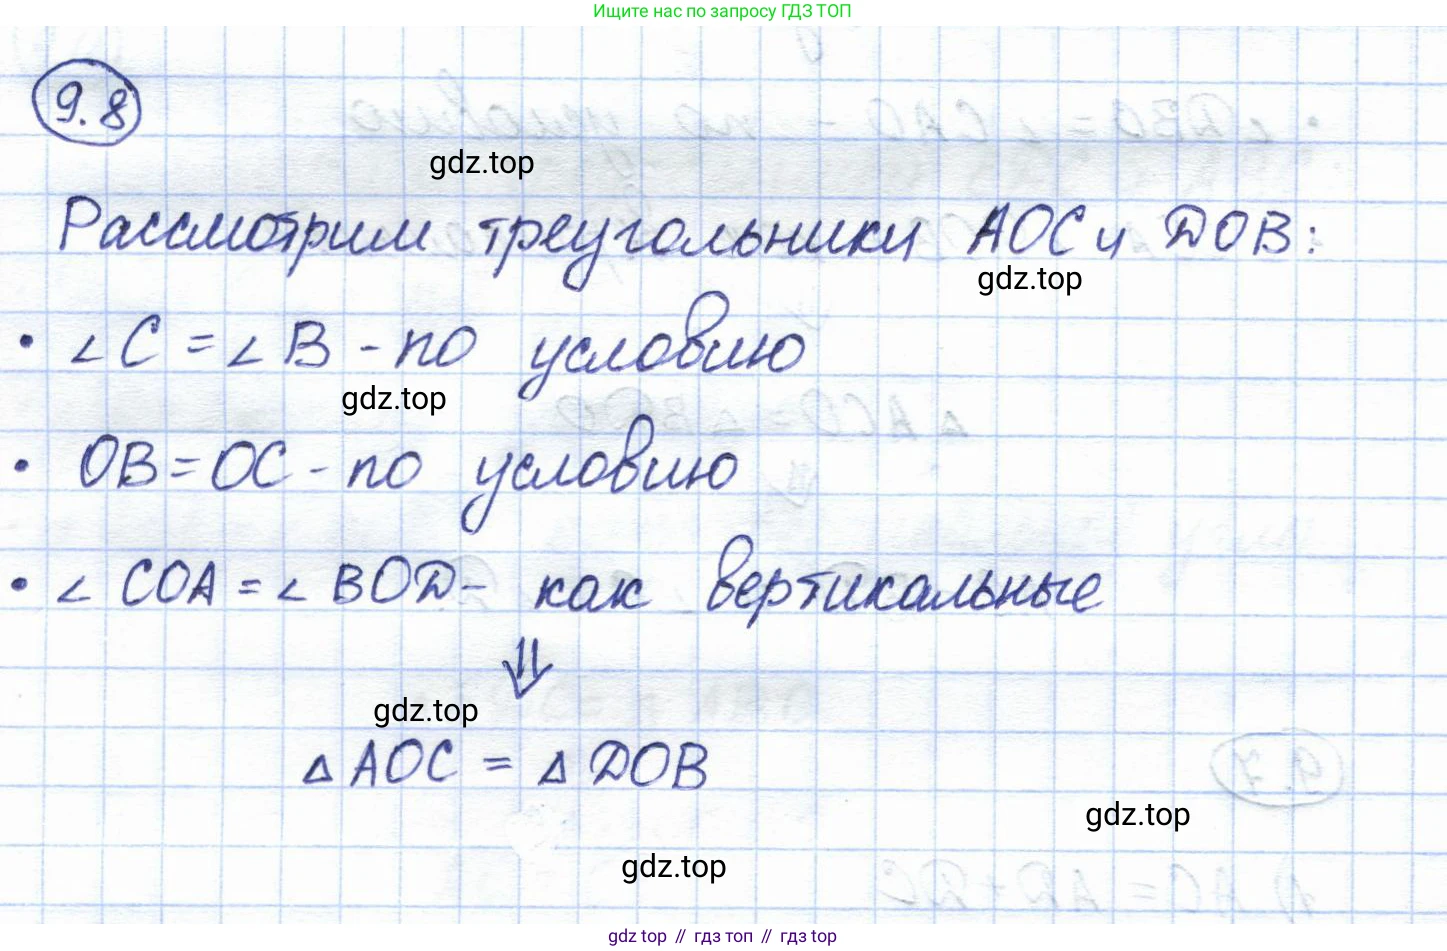 Ищите нас по запросу ГДЗ ТОП
9.8
gdz.top
Рассмотрим треугольники AOC и DOB:
gdz.top
• ∠C = ∠B - по условию
gdz.top
• OB = OC - по условию
• ∠COA = ∠BOD - как вертикальные
⇓
gdz.top
△AOC = △DOB
gdz.top
gdz.top
gdz top // гдз топ // гдз top